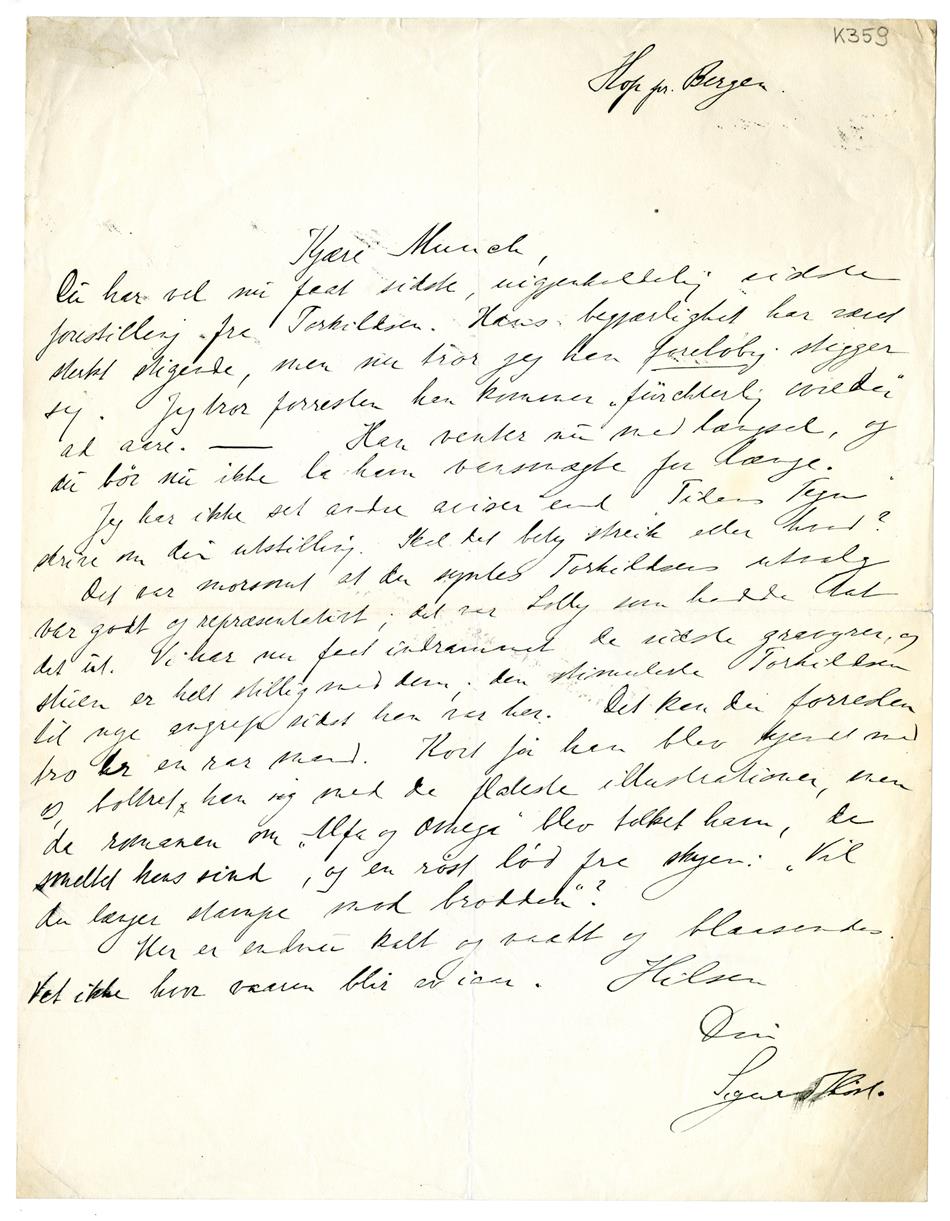 K359
Hop pr. Bergen.
Kjære Munch,
Du har vel nu faat sidste, uigjenkaldelig sidste
forestilling fra Torkildsen. Hans begjærlighet har været
sterkt stigende, men nu tror jeg han foreløbig stagger
sej. Jeg tror forresten han kommer „fürchterlig wieder"
ad aare. — Han venter nu med længsel, og
du bør nu ikke la ham vansmægte for længe.
Jeg har ikke set andre aviser end „Tidens Tegn"
skrive om din utstilling. Skal det bety streik eller hvad?
Det var morsomt at du syntes Torkildsens utvalg
var godt og repræsentativt; det var Lolly som hadde tat
det ut. Vi har nu faat indrammet de sidste gravyrer, og
stuen er helt stillig med dem; den stimulerte Torkildsen
til nye angrep sidst han var her. Det kan du forresten
tro er en rar mand. Kort før han blev kjendt med
, boltret han sig med de flaueste illustrationer, men
da romanen om „Alfa og Omega" blev tolket ham, da
smeltet hans sind, og en røst lød fra skyen: „Vil
du længer stampe mod brodden"?
Her er endnu kalt og vaatt og blaasende.
Vet ikke hvor vaaren blir av iaar. Hilsen
Din
Sigurd Høst.